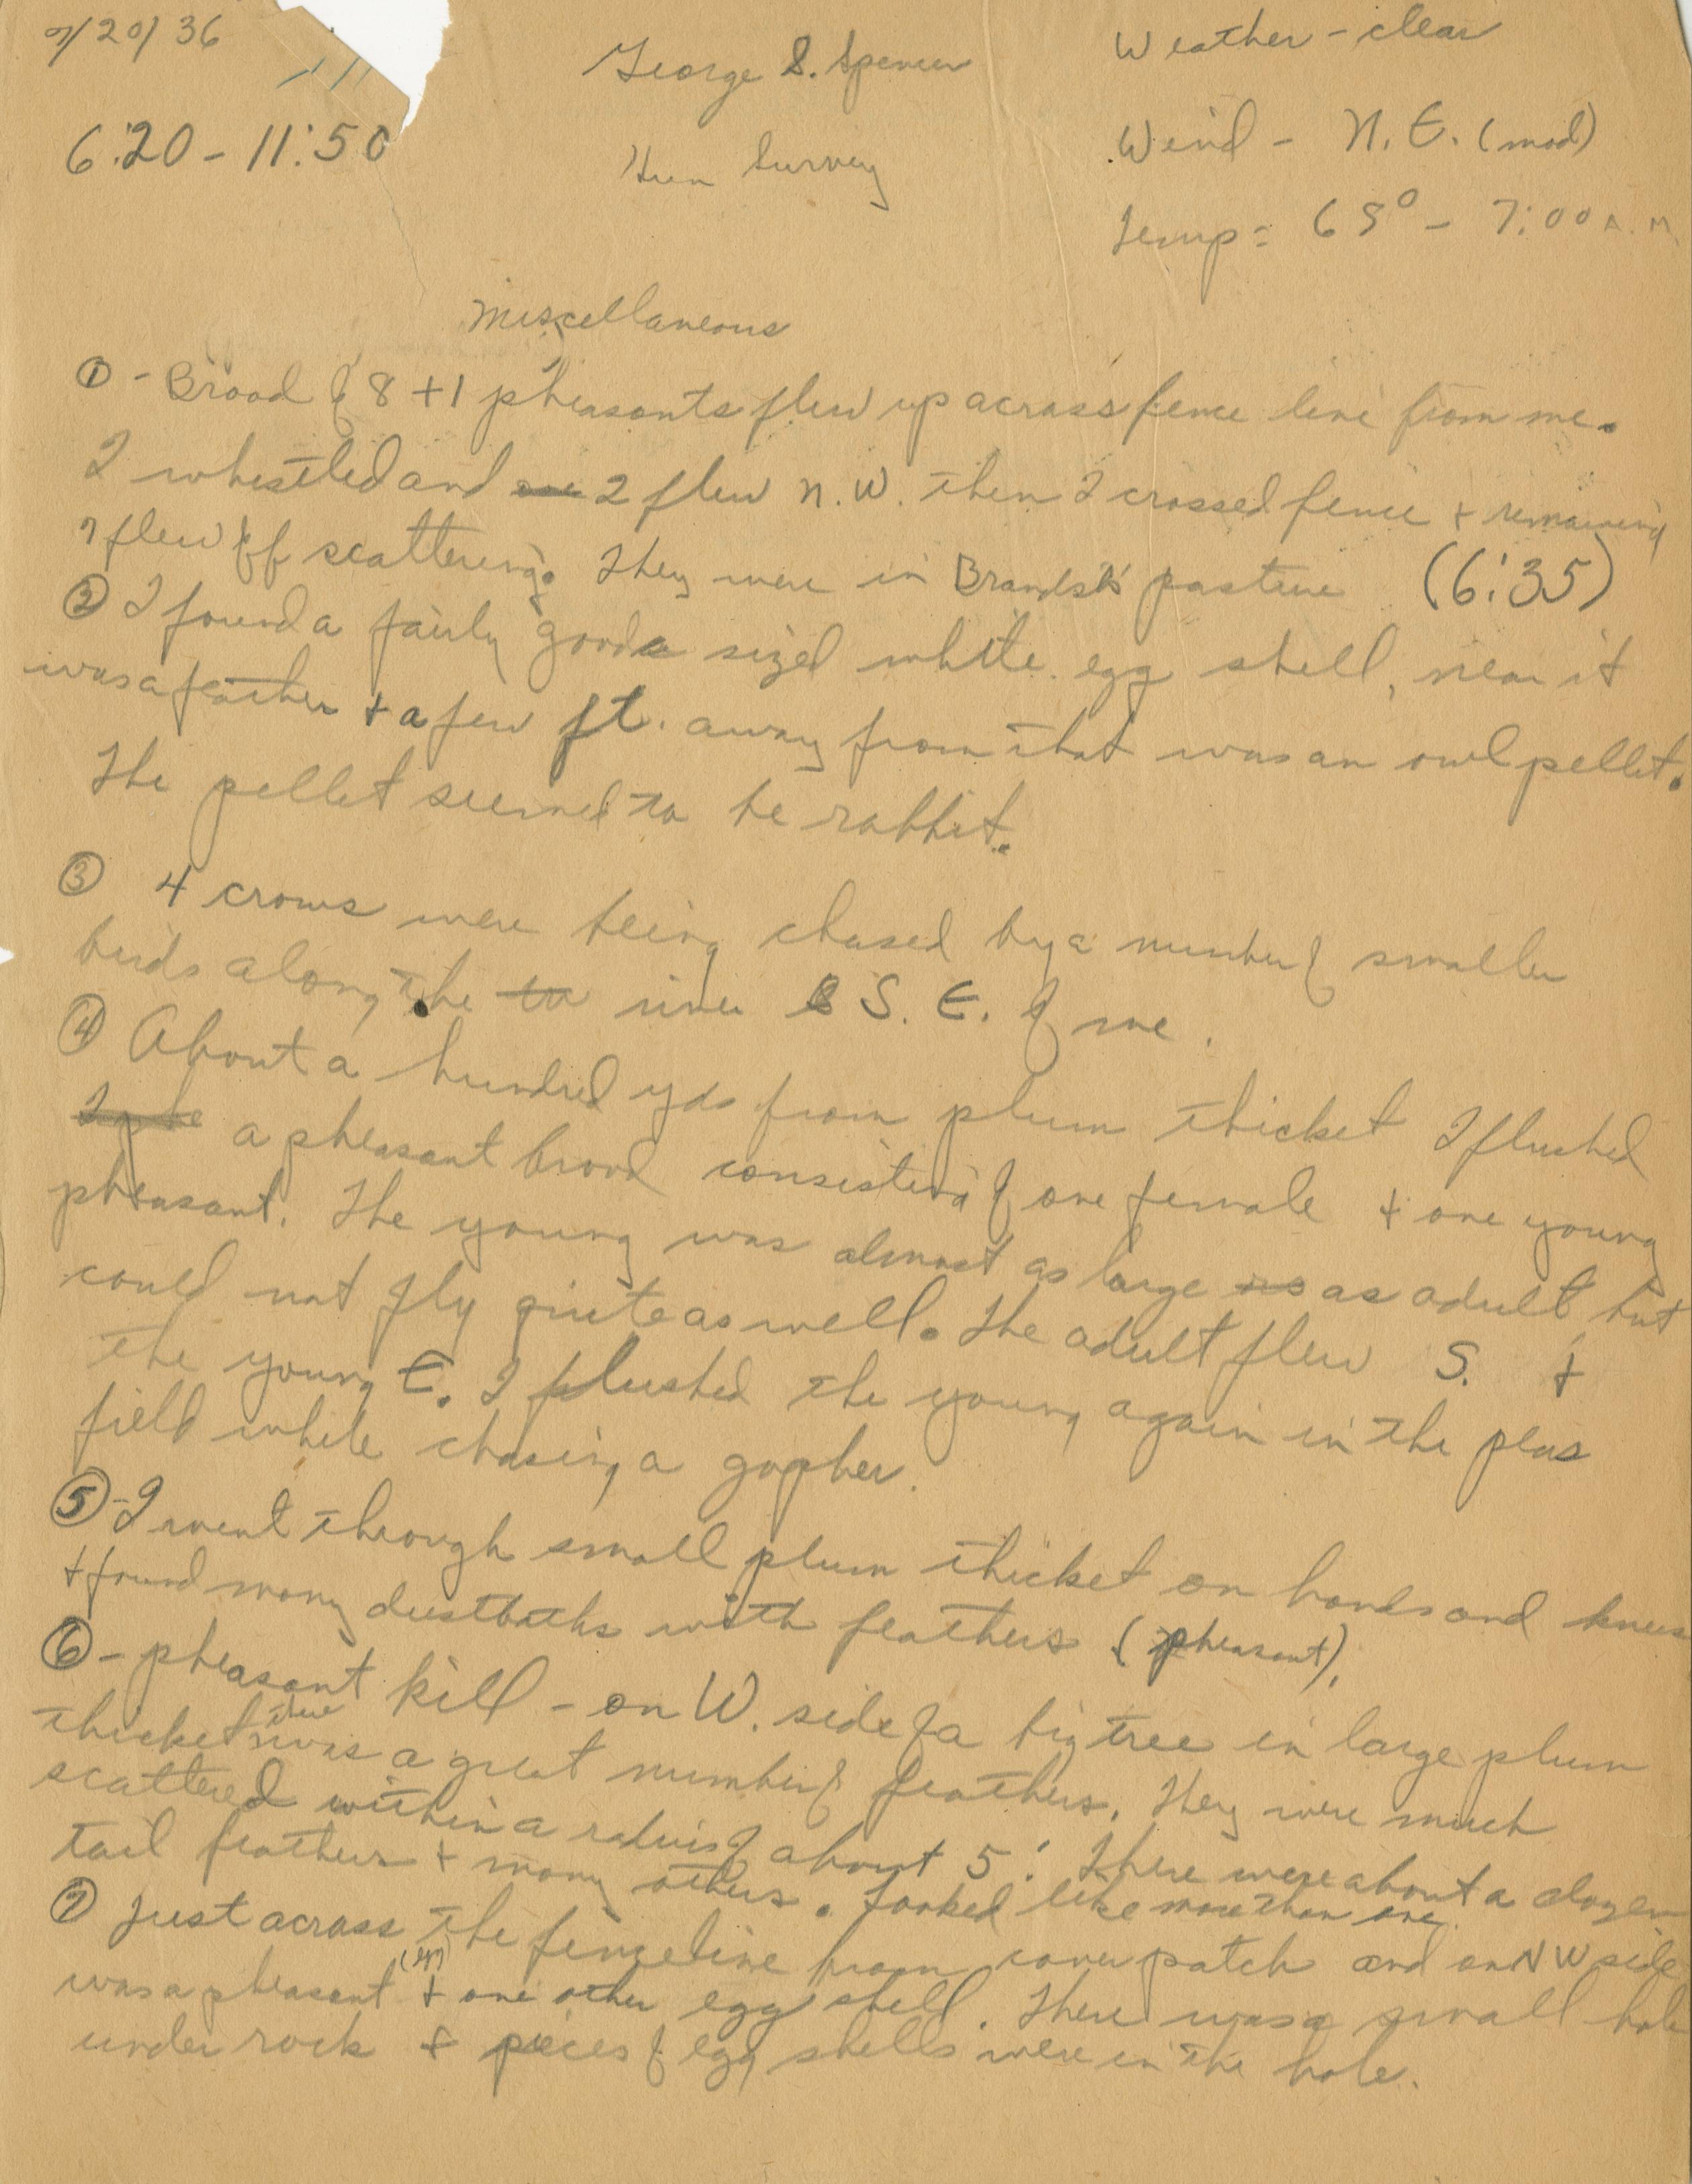 7/20/36
George S. Spencer
Weather - clear
6:20 - 11:50
Hun Survey
Wind - N.E. (mod)
Temp = 65° - 7:00 A.M.
Miscellaneous
① - Brood of 8 + 1 pheasants flew up across fence line from me.
I whistled and 2 flew N.W. then I crossed fence + remaining
7 flew off scattering. They were in pasture (6:35)
② I found a fairly good sized white egg shell, near it
was a feather + a few ft. away from that was an owl pellet.
The pellet seemed to be rabbit.
③ 4 crows were being chased by a number of smaller
birds along the river S.E. of me.
④ About a hundred yds from plum thicket I flushed
a pheasant brood consisting of one female + one young
pheasant. The young was almost as large as adult but
could not fly quite as well. The adult flew S. +
the young E. I flushed the young again in the peas
field while chasing a gopher.
⑤ - I went through small plum thicket on hands and knees
+ found many dustbaths with feathers (pheasant).
⑥ - pheasant kill - on W. side of a big tree in large plum
thicket there was a great number of feathers. They were much
scattered within a radius of about 5'. There were about a dozen
tail feathers + many others. Looked like more than one.
⑦ Just across the fenceline from cover patch and on NW side
was a pheasant (egg) + one other egg shell. There was a small hole
under rock + pieces of egg shells were in the hole.